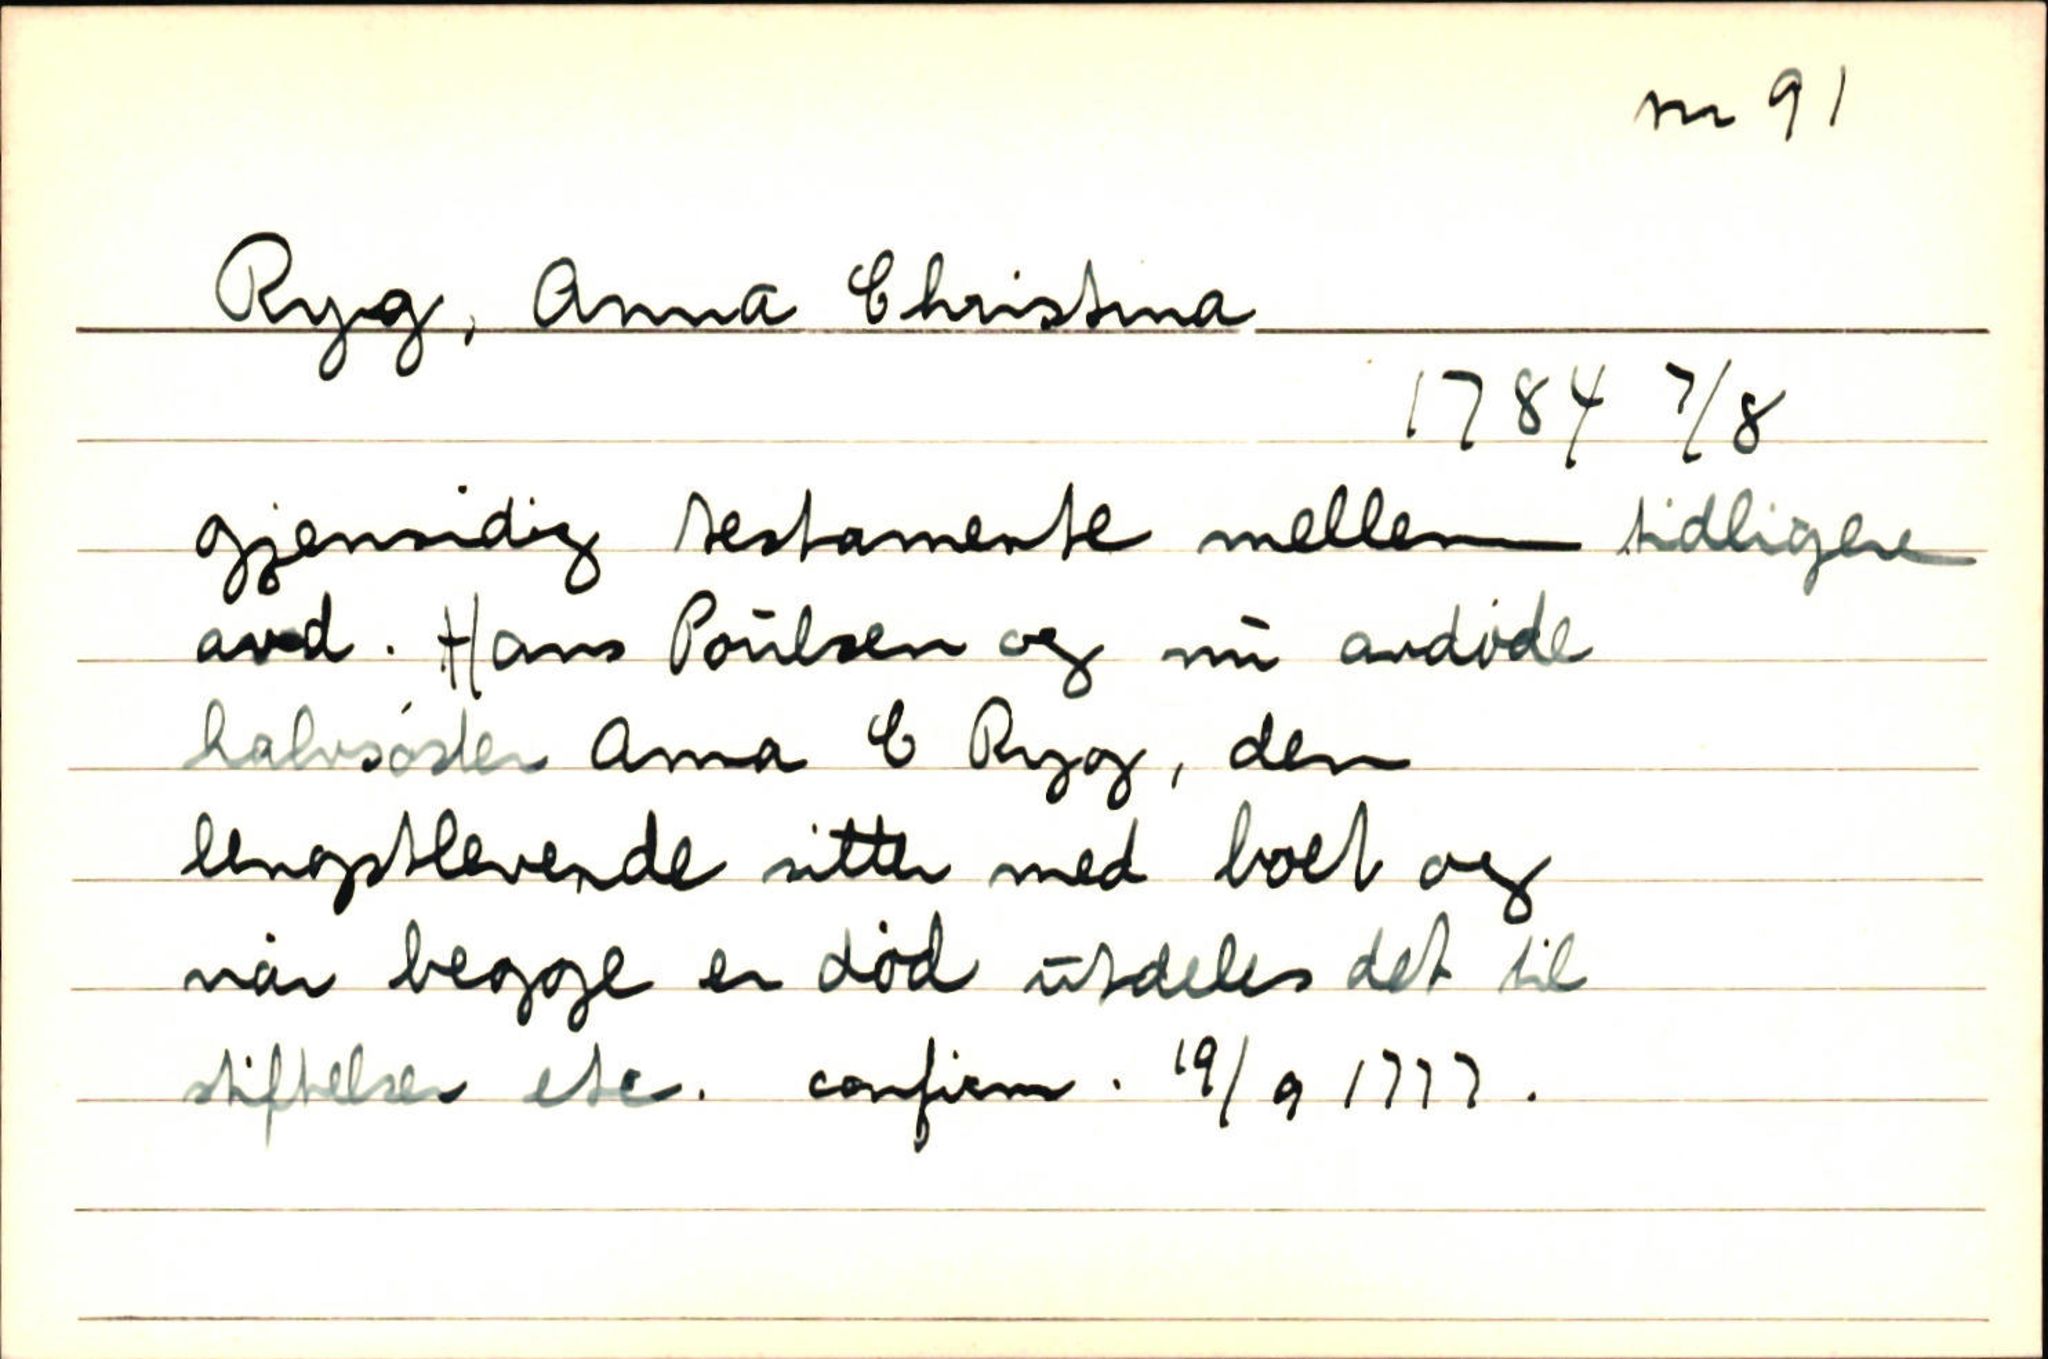 nr 91
Ryg, Anna Christina
1784 7/8
gjensidig testamente mellem tidligere
avd. Hans Poulsen og nu avdøde
halvsøster Anna C Ryg, den
lengstlevende sitter med boet og
når begge er død utdeles det til
stiftelser etc. confirm. 19/9 1777.